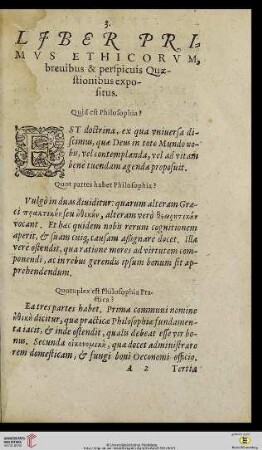 3.
LIBER PRI-
MVS ETHICORVM,
breuibus & perspicuis Quæ-
stionibus expo-
situs.
Quid est Philosophia?
EST doctrina, ex qua vniuersa di-
scimus, quæ Deus in toto Mundo no-
bis, vel contemplanda, vel ad vitam
bene tuendam agenda proposuit.
Quot partes habet Philosophia?
Vulgò in duas diuiditur: quarum alteram Græ-
ci πρακτικὴν seu ἠθικὴν, alteram verò θεωρητικὴν
vocant. Et hæc quidem nobis rerum cognitionem
aperit, & suam cuiq; causam assignare docet. illa
verè ostendit, qua ratione mores ad virtutem com-
ponendi, ac in rebus gerendis ipsum bonum sit ap-
prehendendum.
Quotuplex est Philosophia Pra-
ctica?
Ea tres partes habet. Prima communi nomine
ἠθικὴ dicitur, quæ practicæ Philosophiæ fundamen-
ta iacit, & inde ostendit, qualis debeat esse vir bo-
nus. Secunda οἰκονομικὴ, quæ docet administrare
rem domesticam, & fungi boni Oeconomi officio.
A 2 Tertia